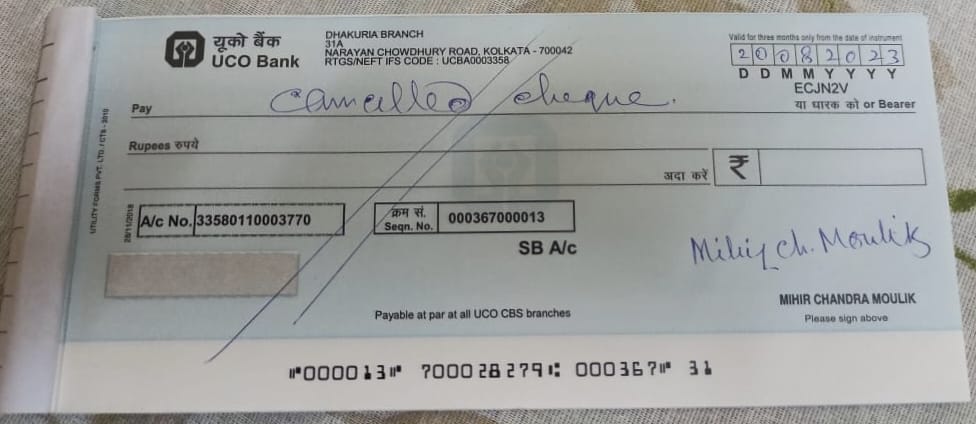 यूको बैंक
UCO Bank
DHAKURIA BRANCH
31A
NARAYAN CHOWDHURY ROAD, KOLKATA - 700042
RTGS/NEFT IFS CODE : UCBA0003358
Valid for three months only from the date of instrument
20082023
D D M M Y Y Y Y
ECJN2V
Pay Cancelled cheque.
या धारक को or Bearer
Rupees रुपये
अदा करें ₹
UTILITY FORMS PVT. LTD. / CTS - 2010
28/11/2018
A/c No. 33580110003770
क्रम सं.
Seqn. No. 000367000013
SB A/c
Mihir Ch. Moulik
MIHIR CHANDRA MOULIK
Please sign above
Payable at par at all UCO CBS branches
⑈000013⑈ 700028279⑆ 000367⑈ 31